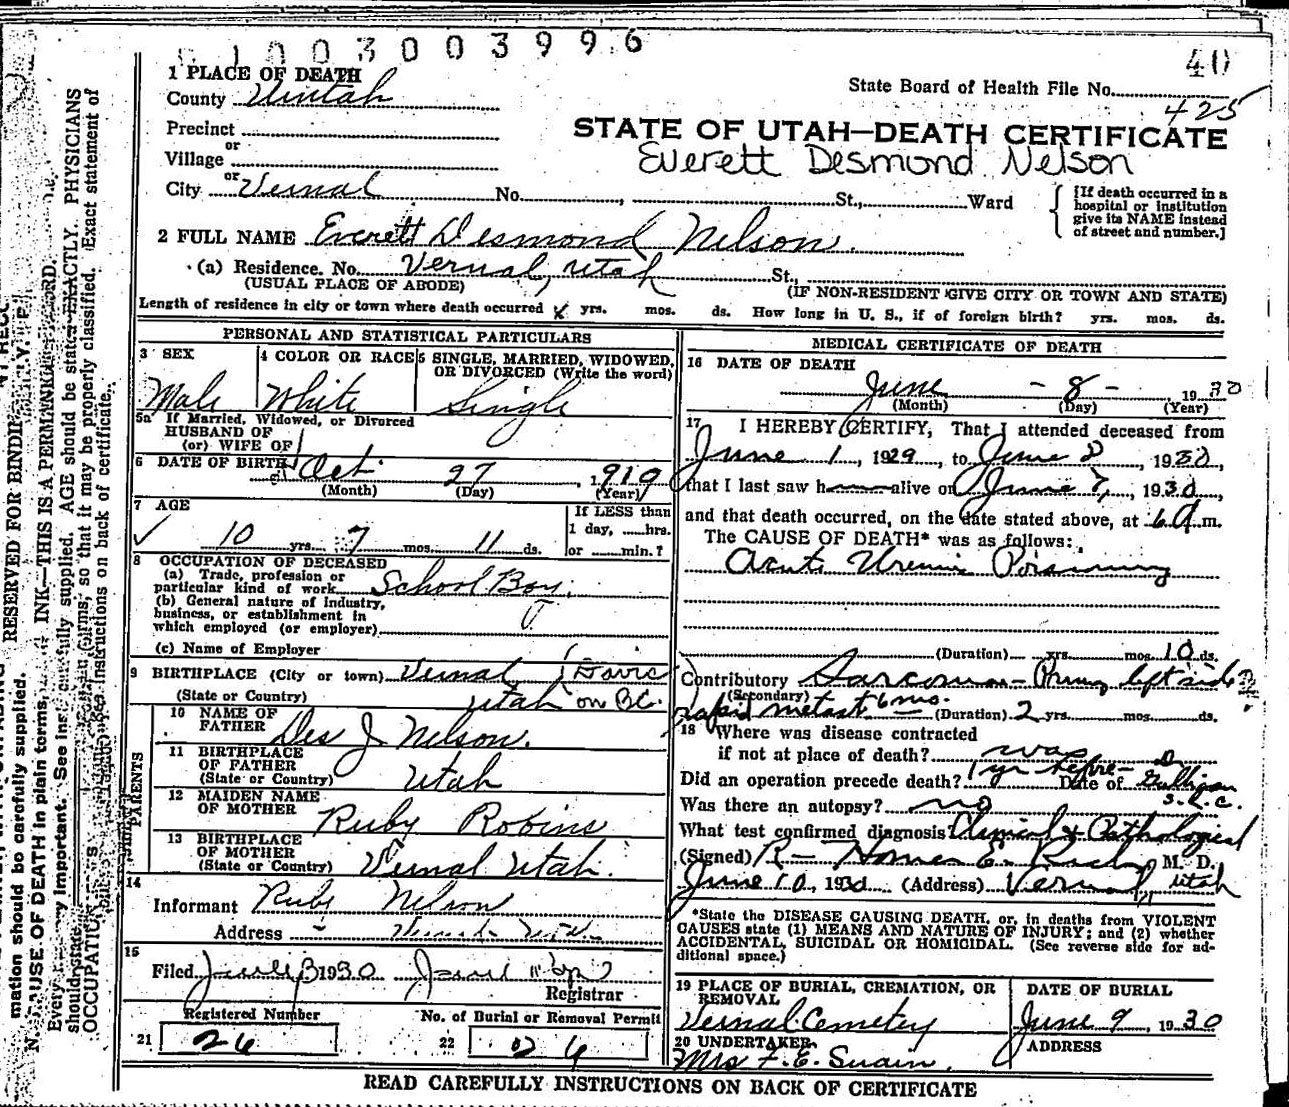 1003003996
40
1 PLACE OF DEATH
State Board of Health File No.
425
County Uintah
Precinct
or
Village
STATE OF UTAH—DEATH CERTIFICATE
Everett Desmond Nelson
or
City Vernal No. , St., Ward
[If death occurred in a hospital or institution give its NAME instead of street and number.]
2 FULL NAME Everett Desmond Nelson.
(a) Residence. No. Vernal, Utah St.,
(USUAL PLACE OF ABODE) (IF NON-RESIDENT GIVE CITY OR TOWN AND STATE)
Length of residence in city or town where death occurred yrs. mos. ds. How long in U. S., if of foreign birth? yrs. mos. ds.
PERSONAL AND STATISTICAL PARTICULARS
3 SEX 4 COLOR OR RACE 5 SINGLE, MARRIED, WIDOWED, OR DIVORCED (Write the word)
Male White Single
5a If Married, Widowed, or Divorced
HUSBAND OF
(or) WIFE OF
6 DATE OF BIRTH Oct 27 1919
(Month) (Day) (Year)
7 AGE
10 yrs. 7 mos. 11 ds.
If LESS than
1 day, hrs.
or min.?
8 OCCUPATION OF DECEASED
(a) Trade, profession or
particular kind of work School Boy.
(b) General nature of industry,
business, or establishment in
which employed (or employer)
(c) Name of Employer
9 BIRTHPLACE (City or town) Vernal (Davis
(State or Country) Utah on B.C.
PARENTS
10 NAME OF
FATHER Des J Nelson.
11 BIRTHPLACE
OF FATHER
(State or Country) Utah
12 MAIDEN NAME
OF MOTHER Ruby Robins
13 BIRTHPLACE
OF MOTHER
(State or Country) Vernal Utah.
14
Informant Ruby Nelson
Address Vernal Utah
15
Filed 1930
Registrar
Registered Number No. of Burial or Removal Permit
21 26 22 26
MEDICAL CERTIFICATE OF DEATH
16 DATE OF DEATH
June - 8 - 1930
(Month) (Day) (Year)
17 I HEREBY CERTIFY, That I attended deceased from
June 1, 1929, to June 8, 1930,
that I last saw h alive on June 7, 1930,
and that death occurred, on the date stated above, at 6 A m.
The CAUSE OF DEATH* was as follows:
Acute Uremic Poisoning
(Duration) yrs. mos. 10 ds.
Contributory Sarcoma - left side
(Secondary)
rapid metast 6 mo. (Duration) 2 yrs. mos. ds.
18 Where was disease contracted
if not at place of death?
Did an operation precede death? 1 yr before Date of
S.L.C.
Was there an autopsy? no
What test confirmed diagnosis? Clinical & Pathological
(Signed) Homer E. M. D.
June 10, 1930 (Address) Vernal, Utah
*State the DISEASE CAUSING DEATH, or, in deaths from VIOLENT
CAUSES state (1) MEANS AND NATURE OF INJURY; and (2) whether
ACCIDENTAL, SUICIDAL OR HOMICIDAL. (See reverse side for ad-
ditional space.)
19 PLACE OF BURIAL, CREMATION, OR
REMOVAL
Vernal Cemetery
DATE OF BURIAL
June 9, 1930
20 UNDERTAKER
Mrs F. E. Swain.
ADDRESS
READ CAREFULLY INSTRUCTIONS ON BACK OF CERTIFICATE